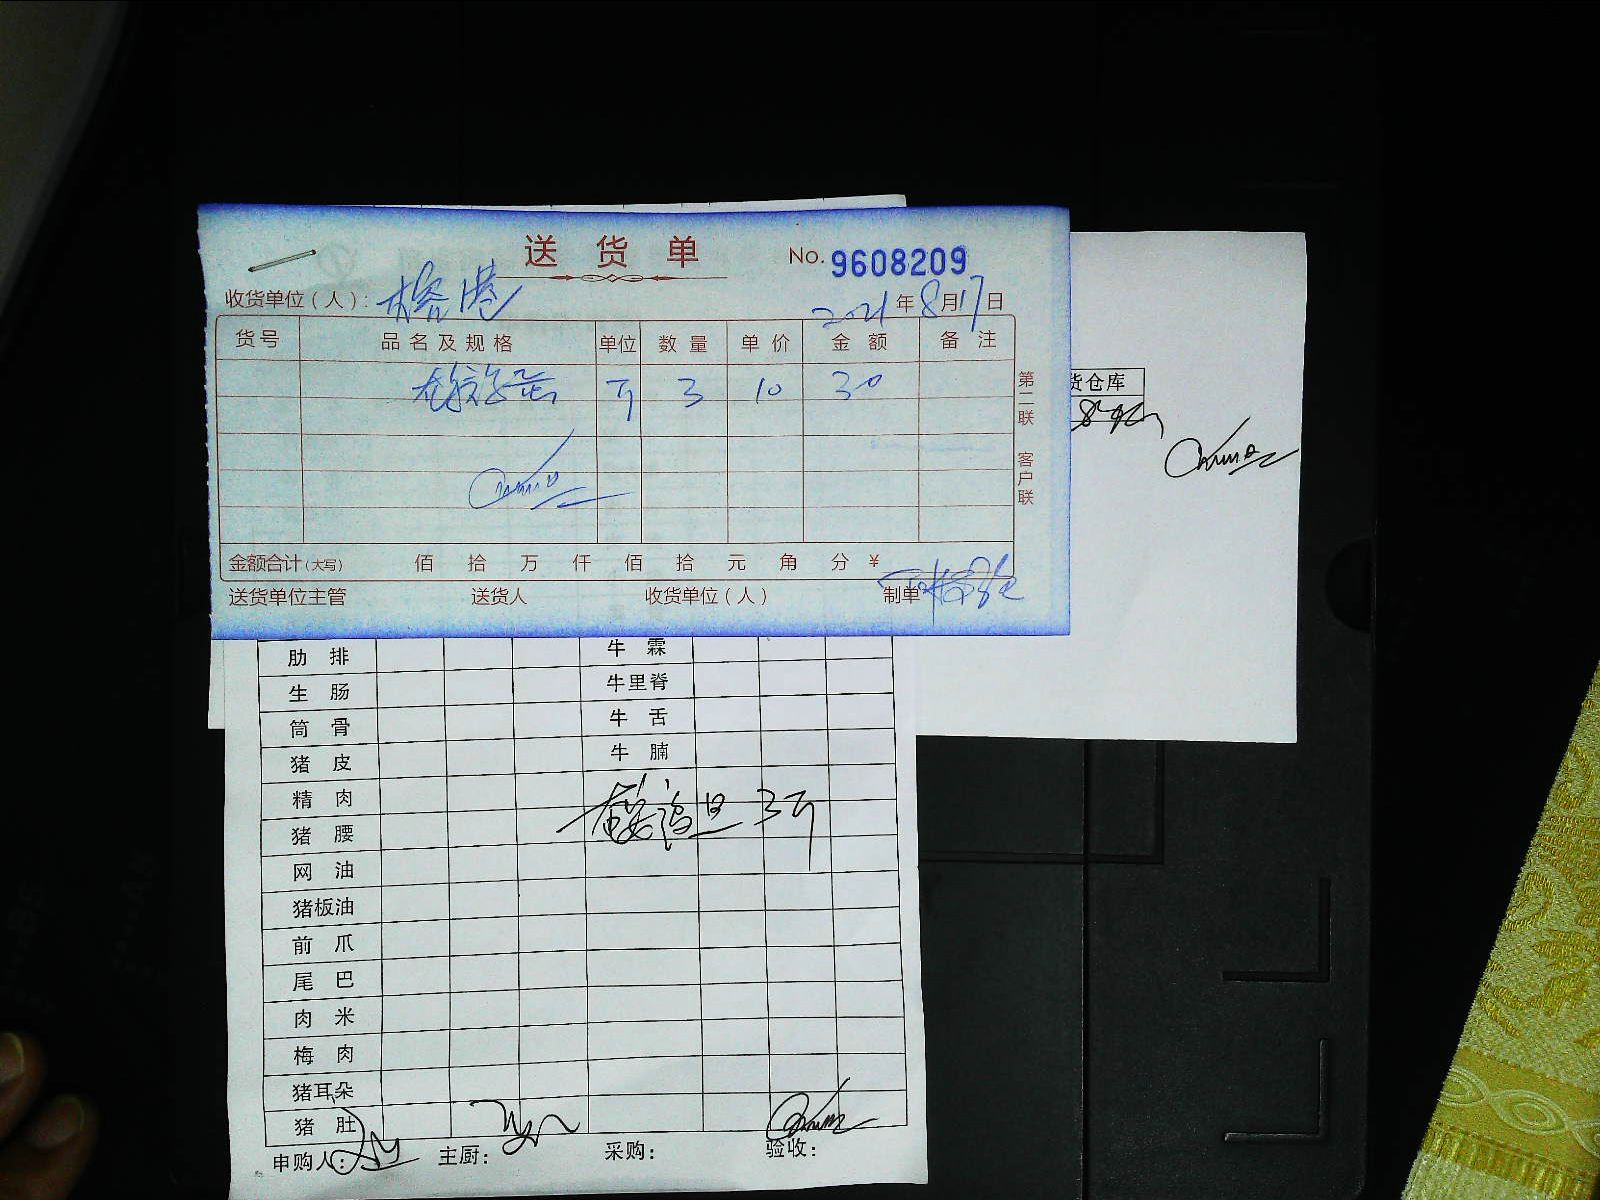 送货单
No. 9608209
收货单位（人）：榕港
2021年8月17日
货号 品名及规格 单位 数量 单价 金额 备注
斤 3 10 30
第二联 客户联
金额合计（大写） 佰 拾 万 仟 佰 拾 元 角 分 ¥
送货单位主管 送货人 收货单位（人） 制单
货仓库
肋排 牛霖
生肠 牛里脊
筒骨 牛舌
猪皮 牛腩
精肉
3斤
猪腰
网油
猪板油
前爪
尾巴
肉米
梅肉
猪耳朵
猪肚
申购人： 主厨： 采购： 验收：